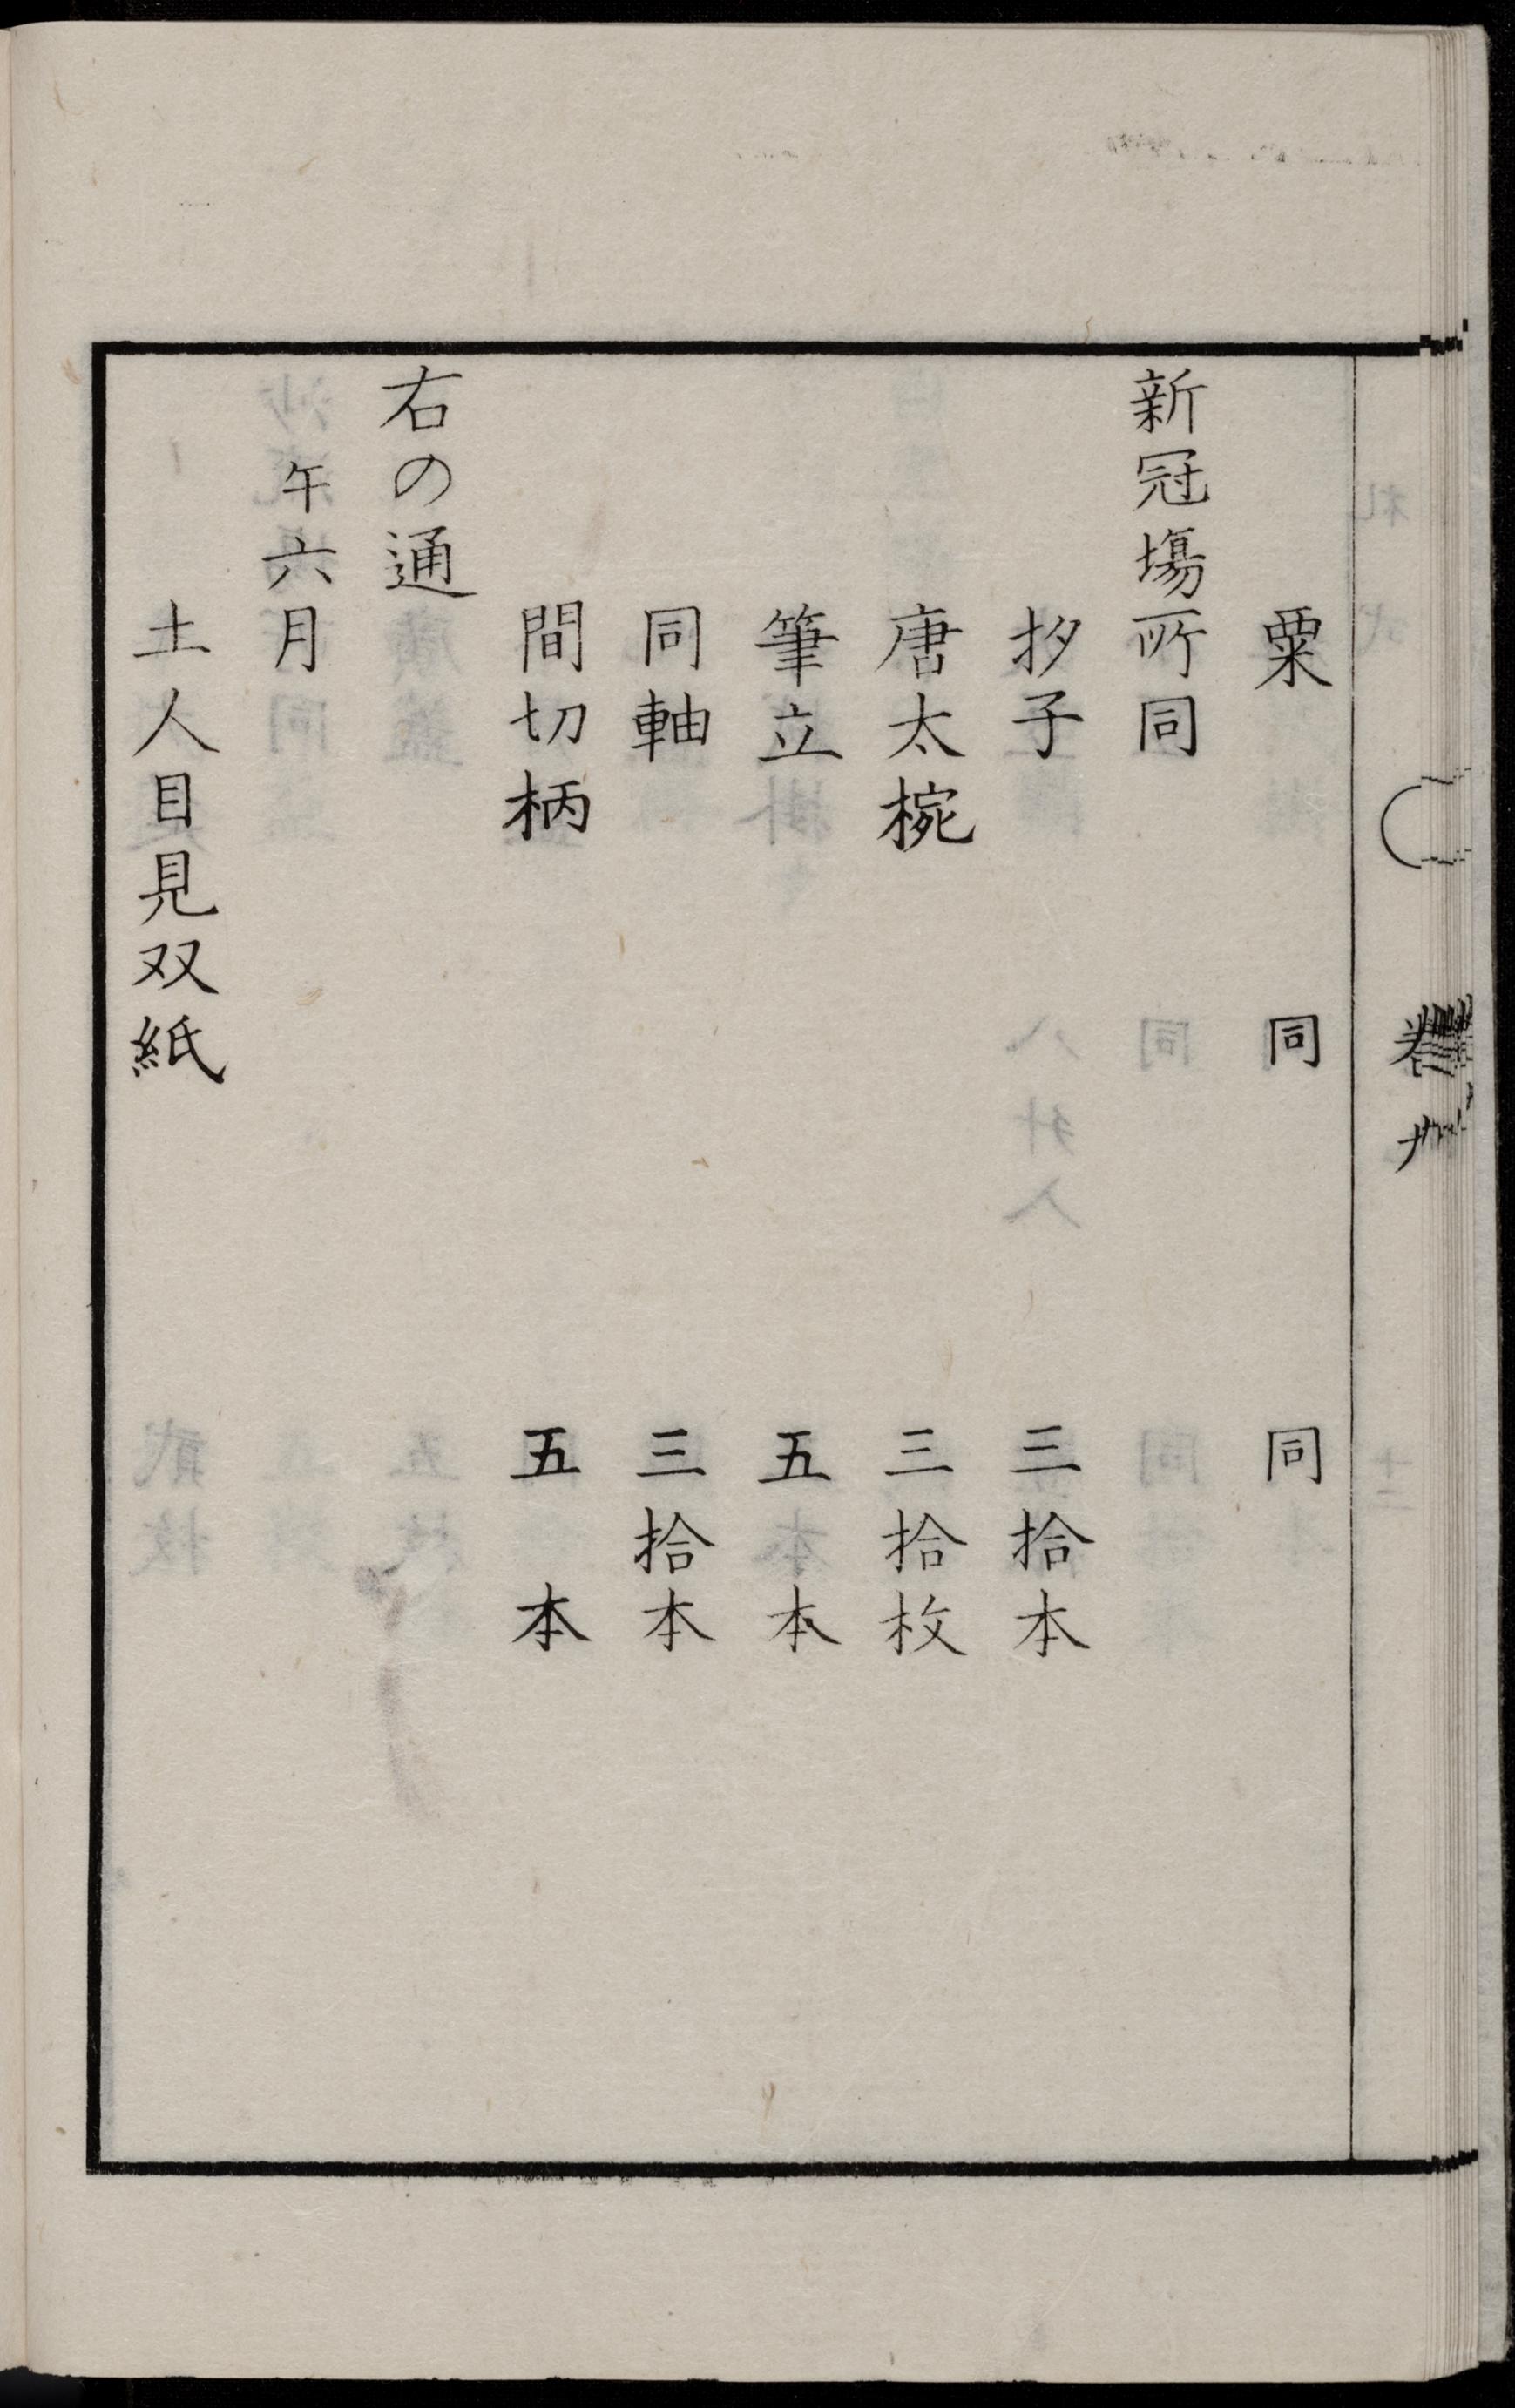 粟　同　同
新冠場所同
拶子　三拾本
唐太椀　三拾枚
筆立　五本
同軸　三拾本
間切柄　五本
右の通
午六月
土人目見双紙